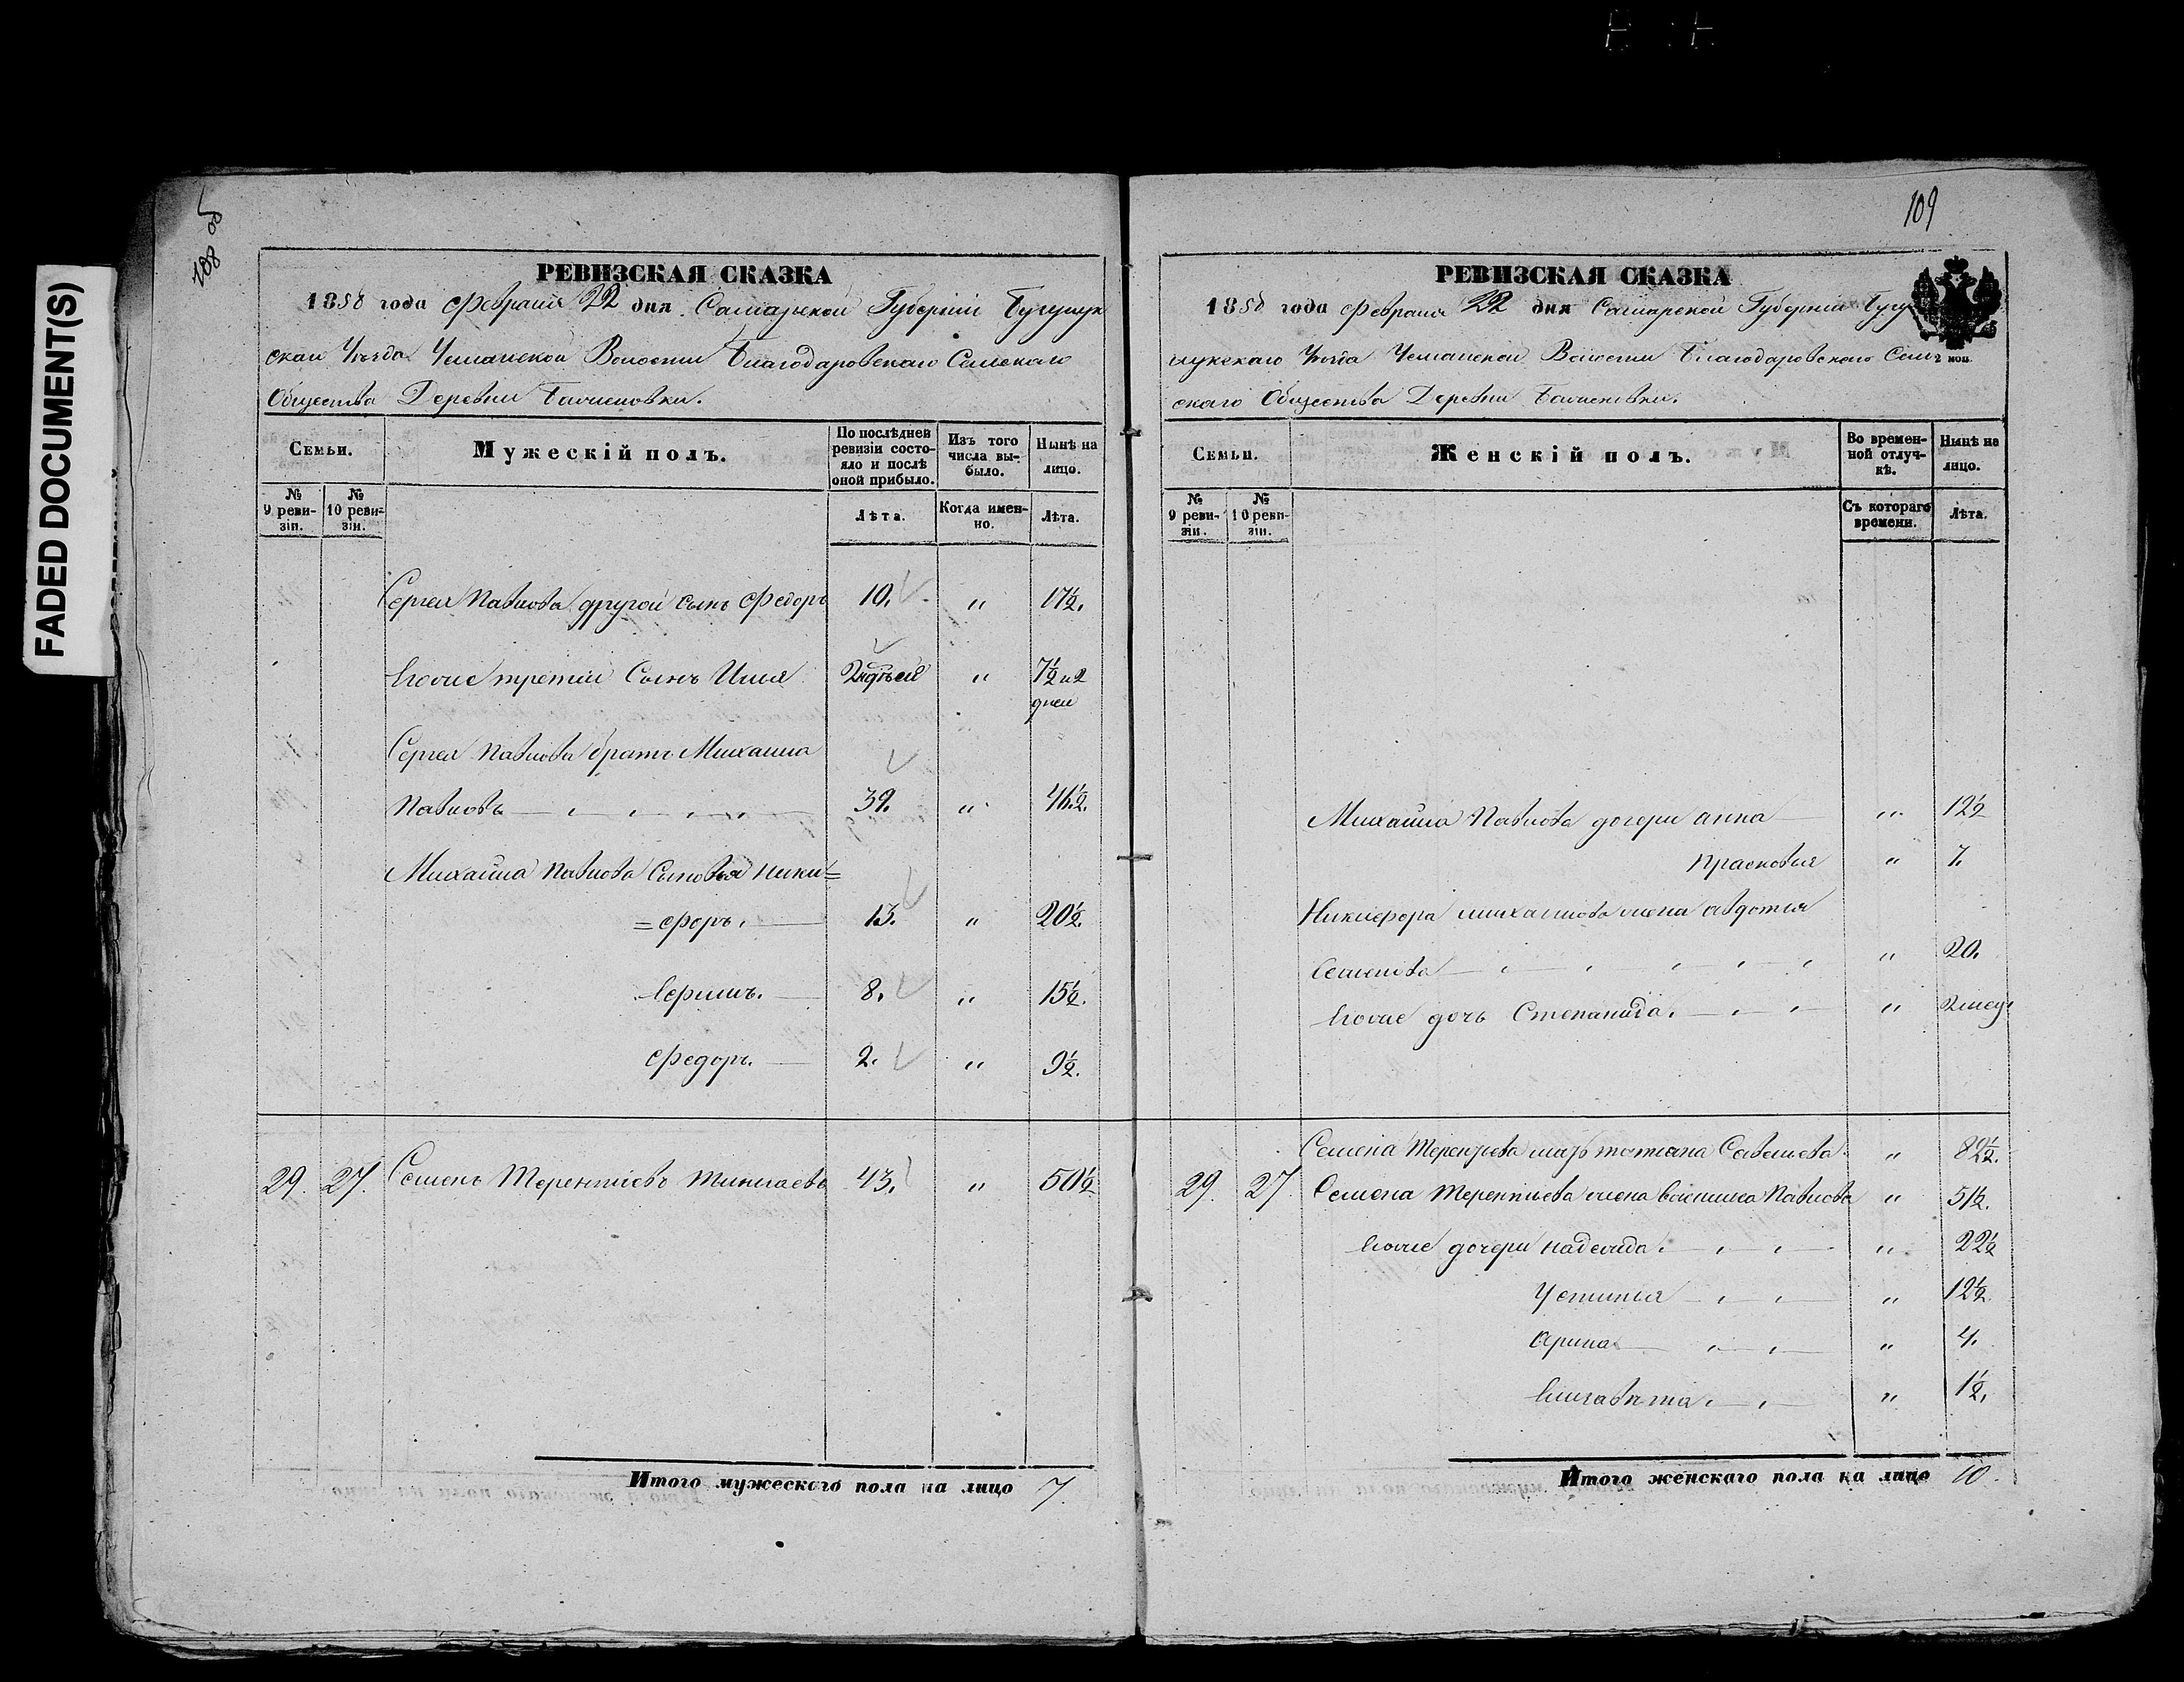 FADED DOCUMENT(S)
108 об
РЕВИЗСКАЯ СКАЗКА
1858 года Февраля 22 дня Самарской Губерніи Бугурук
Волости Благодаровскаго Сельскаго
Общества Деревни
Семьи.
Мужескій полъ.
По послѣдней ревизіи состояло и послѣ оной прибыло.
Изъ того числа выбыло.
Нынѣ на лицо.
№ 9 ревизіи.
№ 10 ревизіи.
Лѣта.
Когда именно.
Лѣта.
Сергея Павлова другой сынъ Федоръ 10. „ 17½.
Егоже третій Сынъ Илья 2 недѣли „ 7½ и 2 дней
Сергея Павлова братъ Михаила
Павловъ 39. „ 46½.
Михайла Павлова Сыновья Ники=
=форъ. 13. „ 20½.
8. „ 15½.
Федоръ. 2. „ 9½.
29. 27. Семенъ Терентіевъ 43. „ 50½
Итого мужескаго пола на лицо 7.
109
РЕВИЗСКАЯ СКАЗКА
1858 года Февраля 22 дня Самарской Губерніи Бугу
Волости Благодаровскаго Сель
2 коп.
скаго Общества Деревни
Семьи.
Женскій полъ.
Во временной отлучкѣ.
Нынѣ на лицо.
№ 9 ревизіи.
№ 10 ревизіи.
Съ котораго времени.
Лѣта.
Михайла Павлова дочери Анна „ 12½
Прасковья „ 7.
Никифора Михайлова жена Авдотья
Семенова „ 20.
Егоже дочь Степанида. „
Семена Терентьева мать Татіана Савельева „ 82½.
29. 27. Семена Терентиева жена Василиса Павлова „ 51½.
Егоже дочери Надежда. „ 22½
Устинья „ 12½
Арина „ 4.
Елизавѣта „ 1½.
Итого женскаго пола на лицо 10.